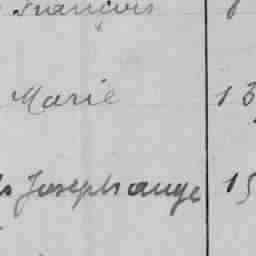 François
Marie 13
Joseph ange 15